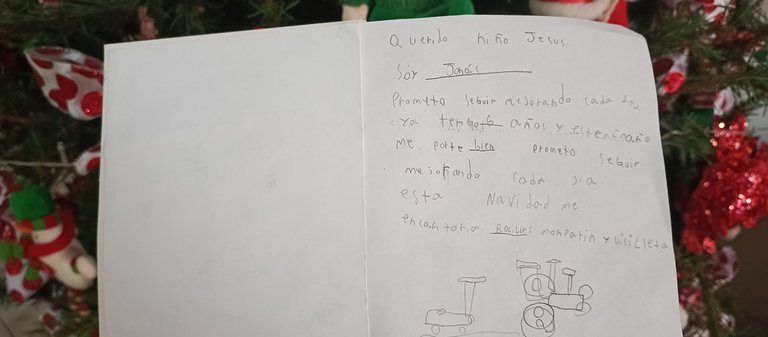 Querido niño Jesus.
Soy: Jonás
Prometo seguir mejorando cada dia,
ya tengo 6 años y este año
me porte bien prometo seguir
mejorando cada dia.
esta Navidad me
encantaria Recibir: monpatin y bicicleta